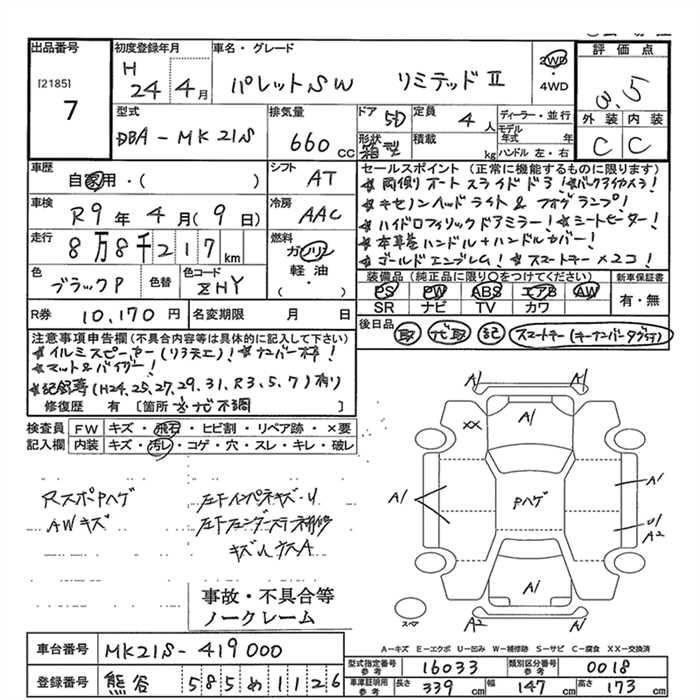 出品番号 初度登録年月 車名・グレード 評価点
[2185] 7
H 24年 4月 パレットSW リミテッドⅡ 2WD ・ 4WD 3.5
型式 排気量 ドア 定員 ディーラー・並行 外装 内装
DBA-MK21S 660cc 5D 4人 モデル年式 年
形状 箱型 積載 kg ハンドル 左・右 C C
車歴 自家用・( ) シフト AT
セールスポイント (正常に機能するものに限ります)
★両側オートスライドドア!★バックアイカメラ!
車検 R9年 4月 (9日) 冷房 AAC
★キセノンヘッドライト&フォグランプ!
★ハイドロフィリックドアミラー!★シートヒーター!
走行 8万8千217km 燃料 ガソリン 軽油 ・( )
★本革巻ハンドル+ハンドルカバー!
★ゴールドエンブレム!★スマートキー×2コ!
色 ブラックP 色替 色コード ZHY
装備品 (純正品に限り○をつけてください) 新車保証書
PS PW ABS エアB AW 有・無
SR ナビ TV カワ
R券 10,170円 名変期限 月 日
後日品 取 ナビ取 記 スマートキー(キーナンバータグ付)
注意事項申告欄(不具合内容等は具体的に記入して下さい)
★イルミスピーカー(リヤ天エ)!★ナンバー枠!
★マット&バイザー!
★記録簿(H24,25,27,29,31,R3,5,7)有り
修復歴 有 [箇所 ☆ナビ不調 ]
検査員 FW キズ・飛石・ヒビ割・リペア跡・×要
記入欄 内装 キズ・汚レ・コゲ・穴・スレ・キレ・破レ
RスポPハゲ
AWキズ
左下インパネキズ・U
キズUナスA
A1 A1 A1
XX
A1 Pハゲ A1
U1
A2
A1
スペア A2 A1
事故・不具合等
ノークレーム
A-キズ E-エクボ U-凹み W-補修跡 S-サビ C-腐食 XX-交換済
車台番号 MK21S-419000
型式指定番号 参考 16033 類別区分番号 参考 0018
登録番号 熊谷 585め1126
車庫証明用 参考 長さ 339cm 幅 147cm 高さ 173cm